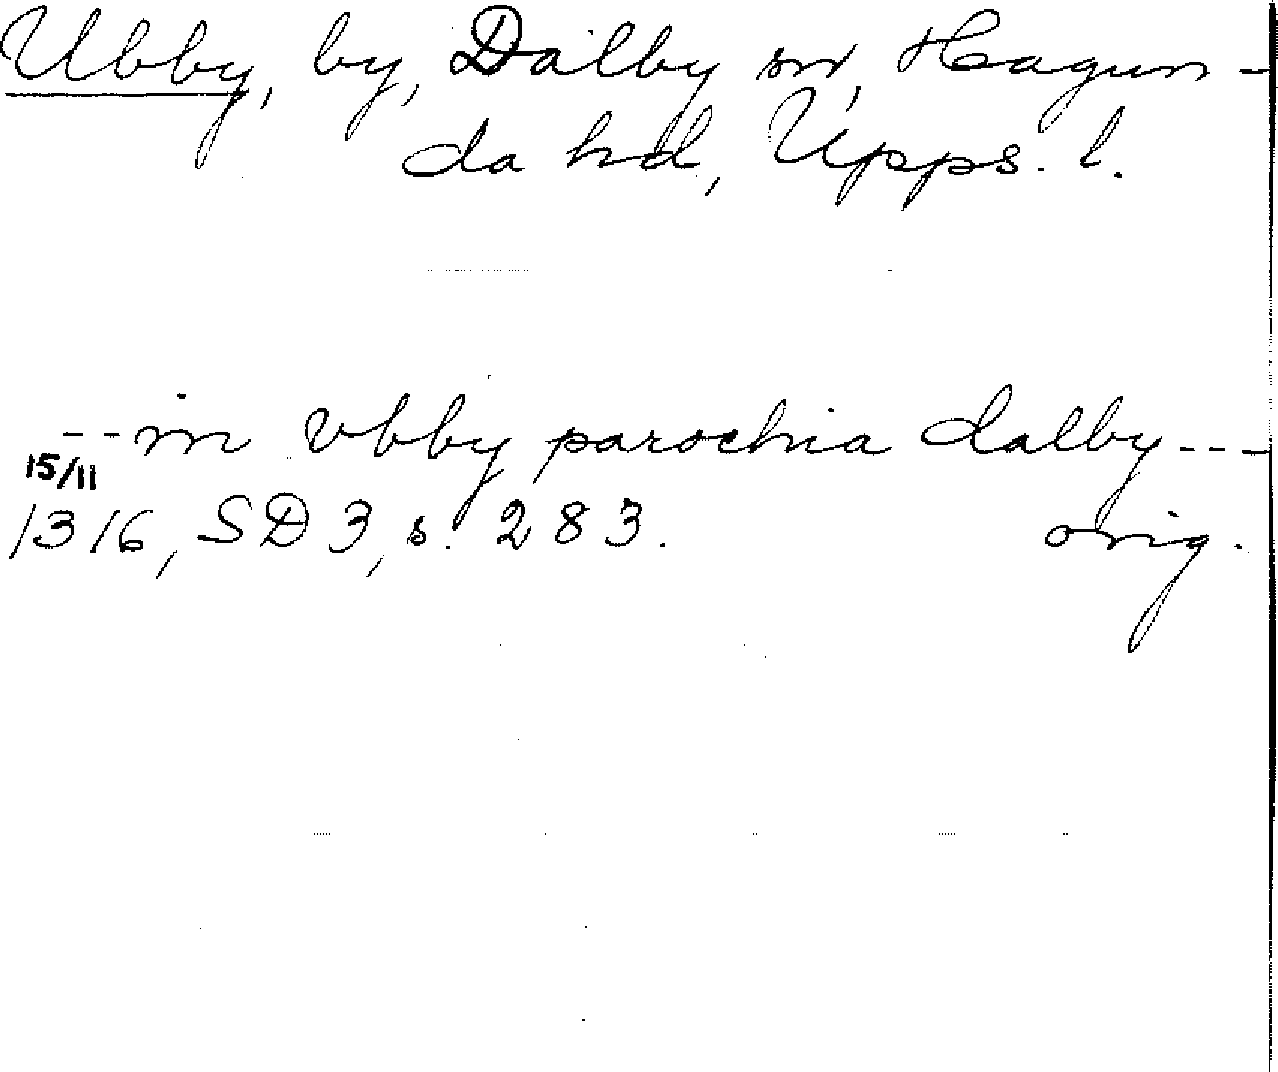 Ubby, by, Dalby sn, Hagun-
da hd, Upps. l.
--in vbby parochia dalby---
15/11
1316, SD 3, s. 283. orig.